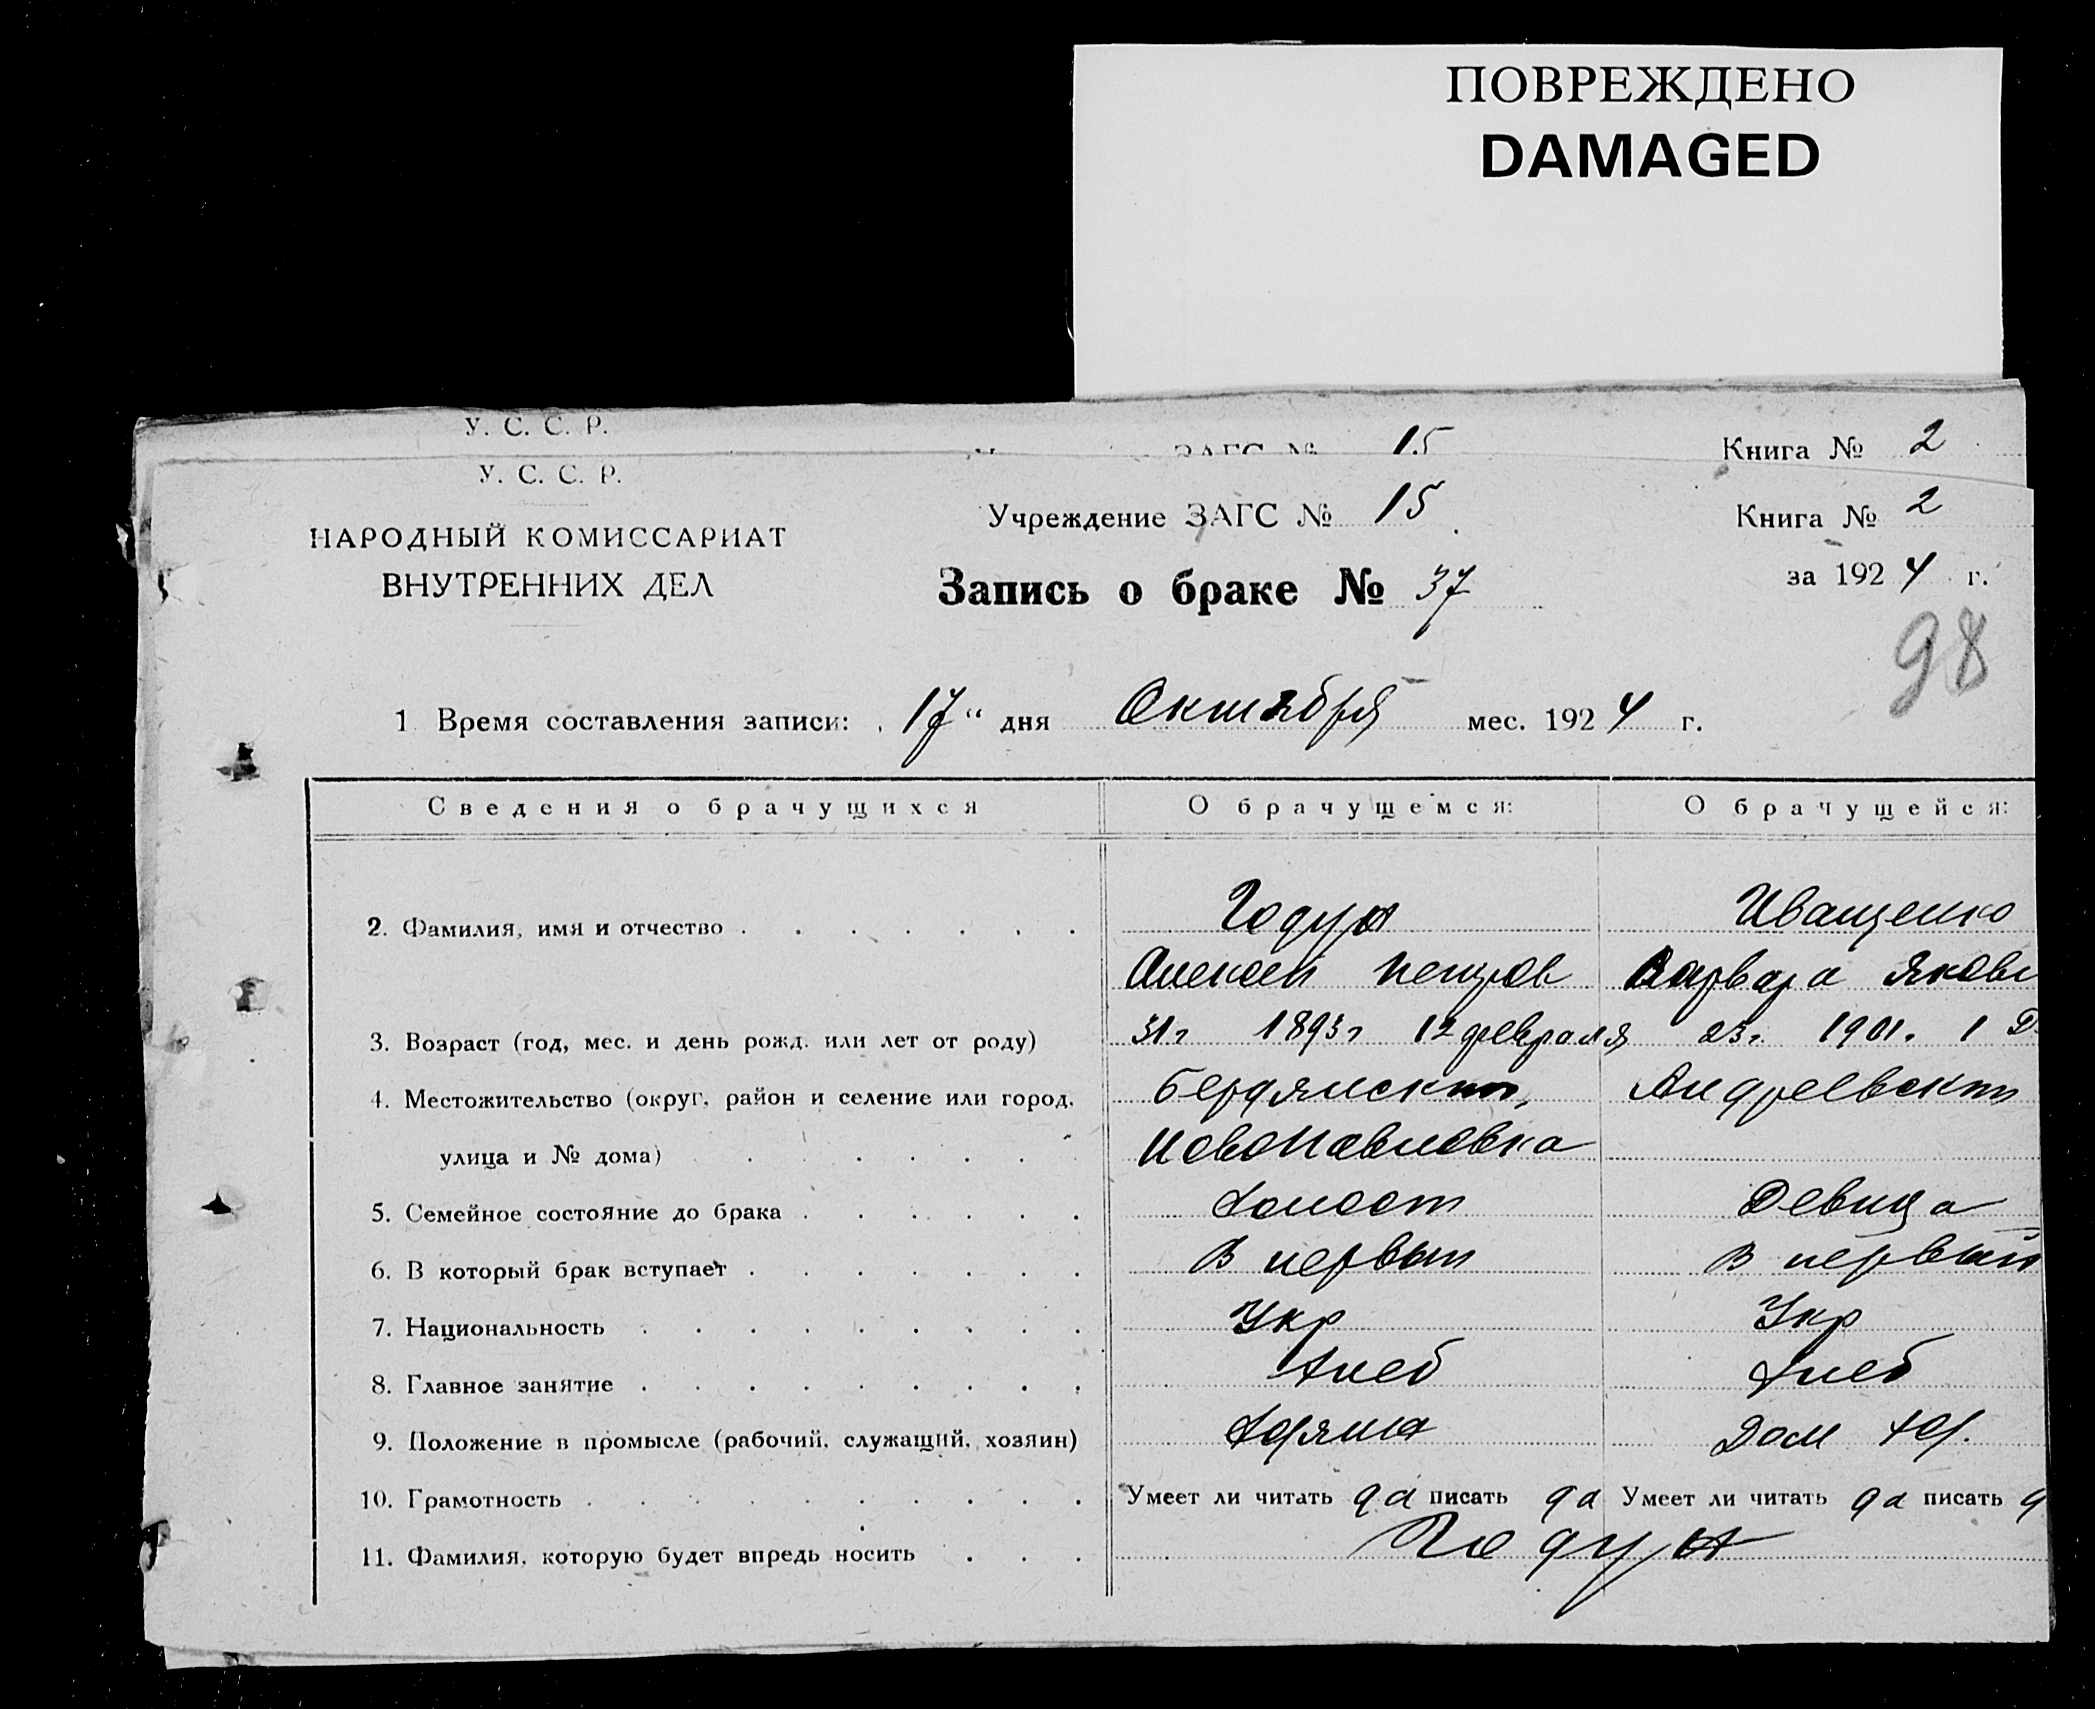 ПОВРЕЖДЕНО
DAMAGED
У. С. С. Р.
ЗАГС № 15
Книга № 2
У. С. С. Р.
НАРОДНЫЙ КОМИССАРИАТ
ВНУТРЕННИХ ДЕЛ
Учреждение ЗАГС № 15
Книга № 2
Запись о браке № 37
за 1924 г.
98
1 Время составления записи: „17“ дня Октября мес. 1924 г.
Сведения о брачущихся О брачущемся: О брачущейся:
2. Фамилия, имя и отчество Годун Иващенко
Алексей Петров Варвара Яковл
3. Возраст (год, мес. и день рожд. или лет от роду) 31г 1893г 12 февраля 23г. 1901. 1 Д
4. Местожительство (округ, район и селение или город, Бердянский, Андреевский
улица и № дома) Новопавловка
5. Семейное состояние до брака Холост Девица
6. В который брак вступает В первый В первый
7. Национальность Укр Укр
8. Главное занятие Хлеб Хлеб
9. Положение в промысле (рабочий, служащий, хозяин) Дом хоз.
10. Грамотность Умеет ли читать да писать да Умеет ли читать да писать д
11. Фамилия, которую будет впредь носить Годун